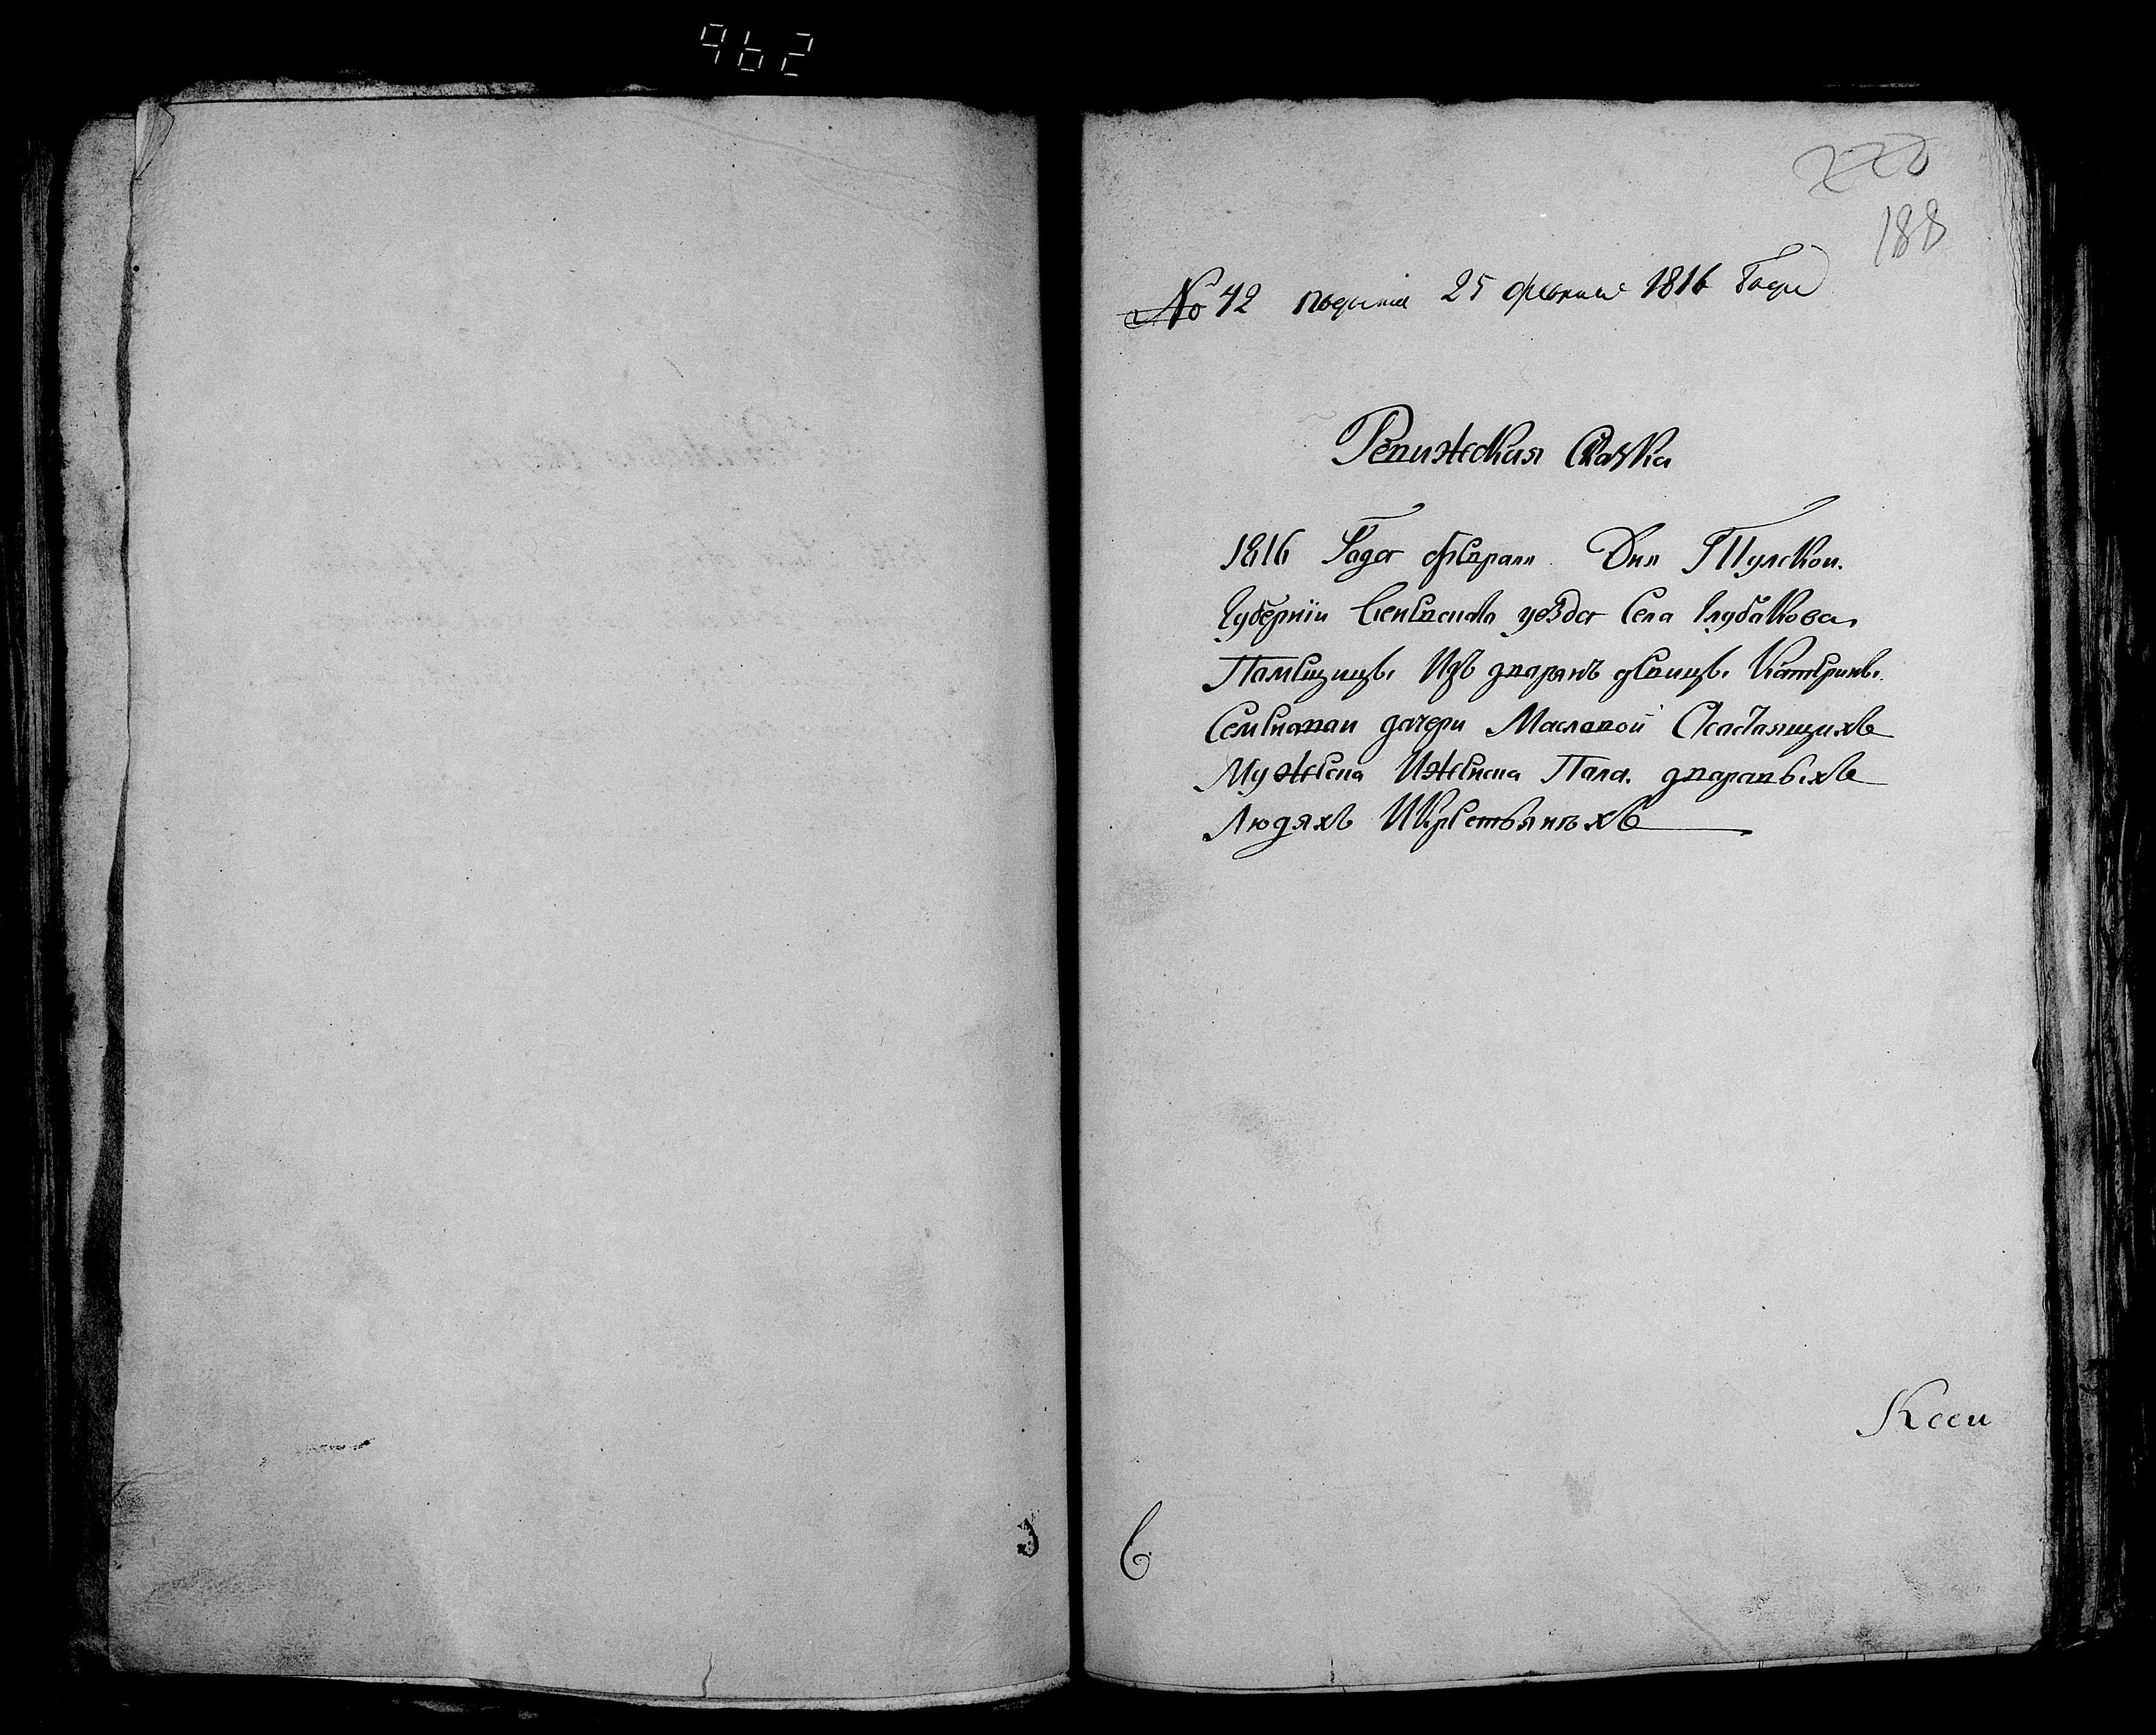 962
220
188
№ 42 подана 25 февраля 1816 Года
Ревижская Сказка
1816 Года февраля Дня Тулской
Губернии уезда Села Глубакова
Памещицы Изъ дварянъ девицы Катерины
Семеновай дачери Масловой Асастаящихъ
Мужеска Иженска Пала дваравыхъ
Людяхъ ИКрестьянѣхъ
Ксеи